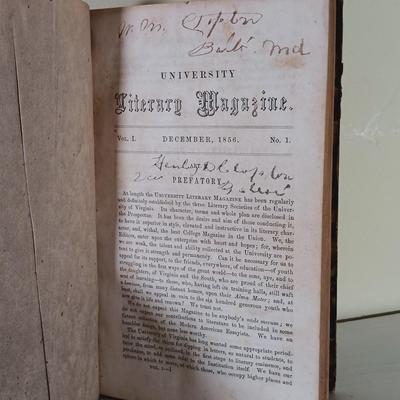 W. M. Clopton
Balt. Md
UNIVERSITY
Literary Magazine.
Vol. I. DECEMBER, 1856. No. 1.
Clopton
PREFATORY.
At length the UNIVERSITY LITERARY MAGAZINE has been regularly
and definitely established by the three Literary Societies of the Univer-
sity of Virginia. Its character, terms and whole plan are disclosed in
the Prospectus. It has been the desire and aim of those conducting it,
to have it superior in style, elevated and instructive in its literary char-
acter, and, withal, the best College Magazine in the Union. We, the
Editors, enter upon the enterprise with heart and hopes; for, wherein
we are weak, the talent and ability collected at the University are po-
tent to give it strength and permanency. Can it be necessary for us to
appeal for its support, to the friends, everywhere, of education—of youth
struggling in the first ways of the great world—to the sons, aye, and to
the daughters, of Virginia and the South, who are proud of their chief
seat of learning—to them, who, having left its training halls, still waft
a from many distant homes, upon their Alma Mater; and, at
least, shall we appeal in vain to the six hundred generous youth who
now give it life and renown? We trust not.
We do not expect this Magazine to be anybody's vade mecum; we
do not expect our contributions to literature to be included in some
future collection of the Modern American Essayists. We have an
humbler design, but none less worthy.
The University of Virginia has long wanted some appropriate period-
ical to satisfy the thirst for dipping in letters, so natural to students, to
tutor the mind, so confined, in the first steps to literary eminence, and
perchance, to add some eclat to the Institution itself. We have our
sphere in which to move, of which those, who occupy higher places and
VOL. I—1